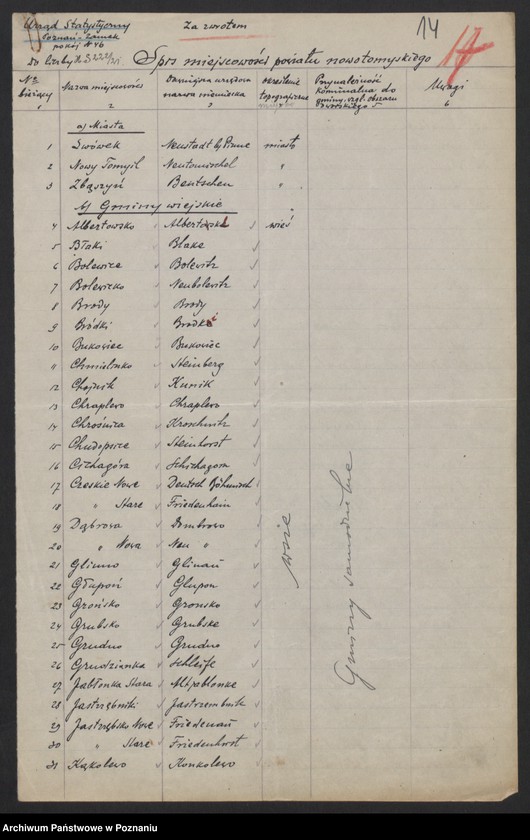 Urząd Statystyczny
Poznań - Zamek
pokój N 46
Za zwrotem
14
Do liczby
Spis miejscowości powiatu nowotomyskiego
17
Nr bieżący
Nazwa miejscowości
Dawniejsza urzędowa nazwa niemiecka
Określenie topograficzne
Przynależność komunalna do gminy, wzgl. obszaru dworskiego
Uwagi
1 2 3 5 6
a) Miasta
1 Lwówek Neustadt b/ Pinne miasto
2 Nowy Tomyśl Neutomischel "
3 Zbąszyń Bentschen "
b) Gminy wiejskie
4 Albertowsko Albertoske wieś
5 Błaki Blake
6 Bolewice Bolewitz
7 Bolewicko Neubolewitz
8 Brody Brody
9 Bródki Brodki
10 Bukowiec Bukowiec
11 Chmielinko Steinberg
12 Chojnik Kunik
13 Chraplewo Chraplewo
14 Chrośnica Kroschnitz
15 Chudopsice Steinhorst
16 Cichagóra Schichagora
17 Czeskie Nowe Deutsch Böhmisch
18 " Stare Friedenhain
19 Dąbrowa Dombrowo
20 " Nowa Neu "
21 Glinno Glinau
22 Głupoń Glupon
23 Grońsko Gronsko
24 Grubsko Grubske
25 Grudno Grudno
26 Grudzianka Schleife
27 Jabłonka Stara Alt Jablonke
28 Jastrzębniki Jastrzembnik
29 Jastrzębsko Nowe Friedenau
30 " Stare Friedenhorst
31 Kąkolewo Konkolewo
wsie
Gminy samodzielne
Archiwum Państwowe w Poznaniu